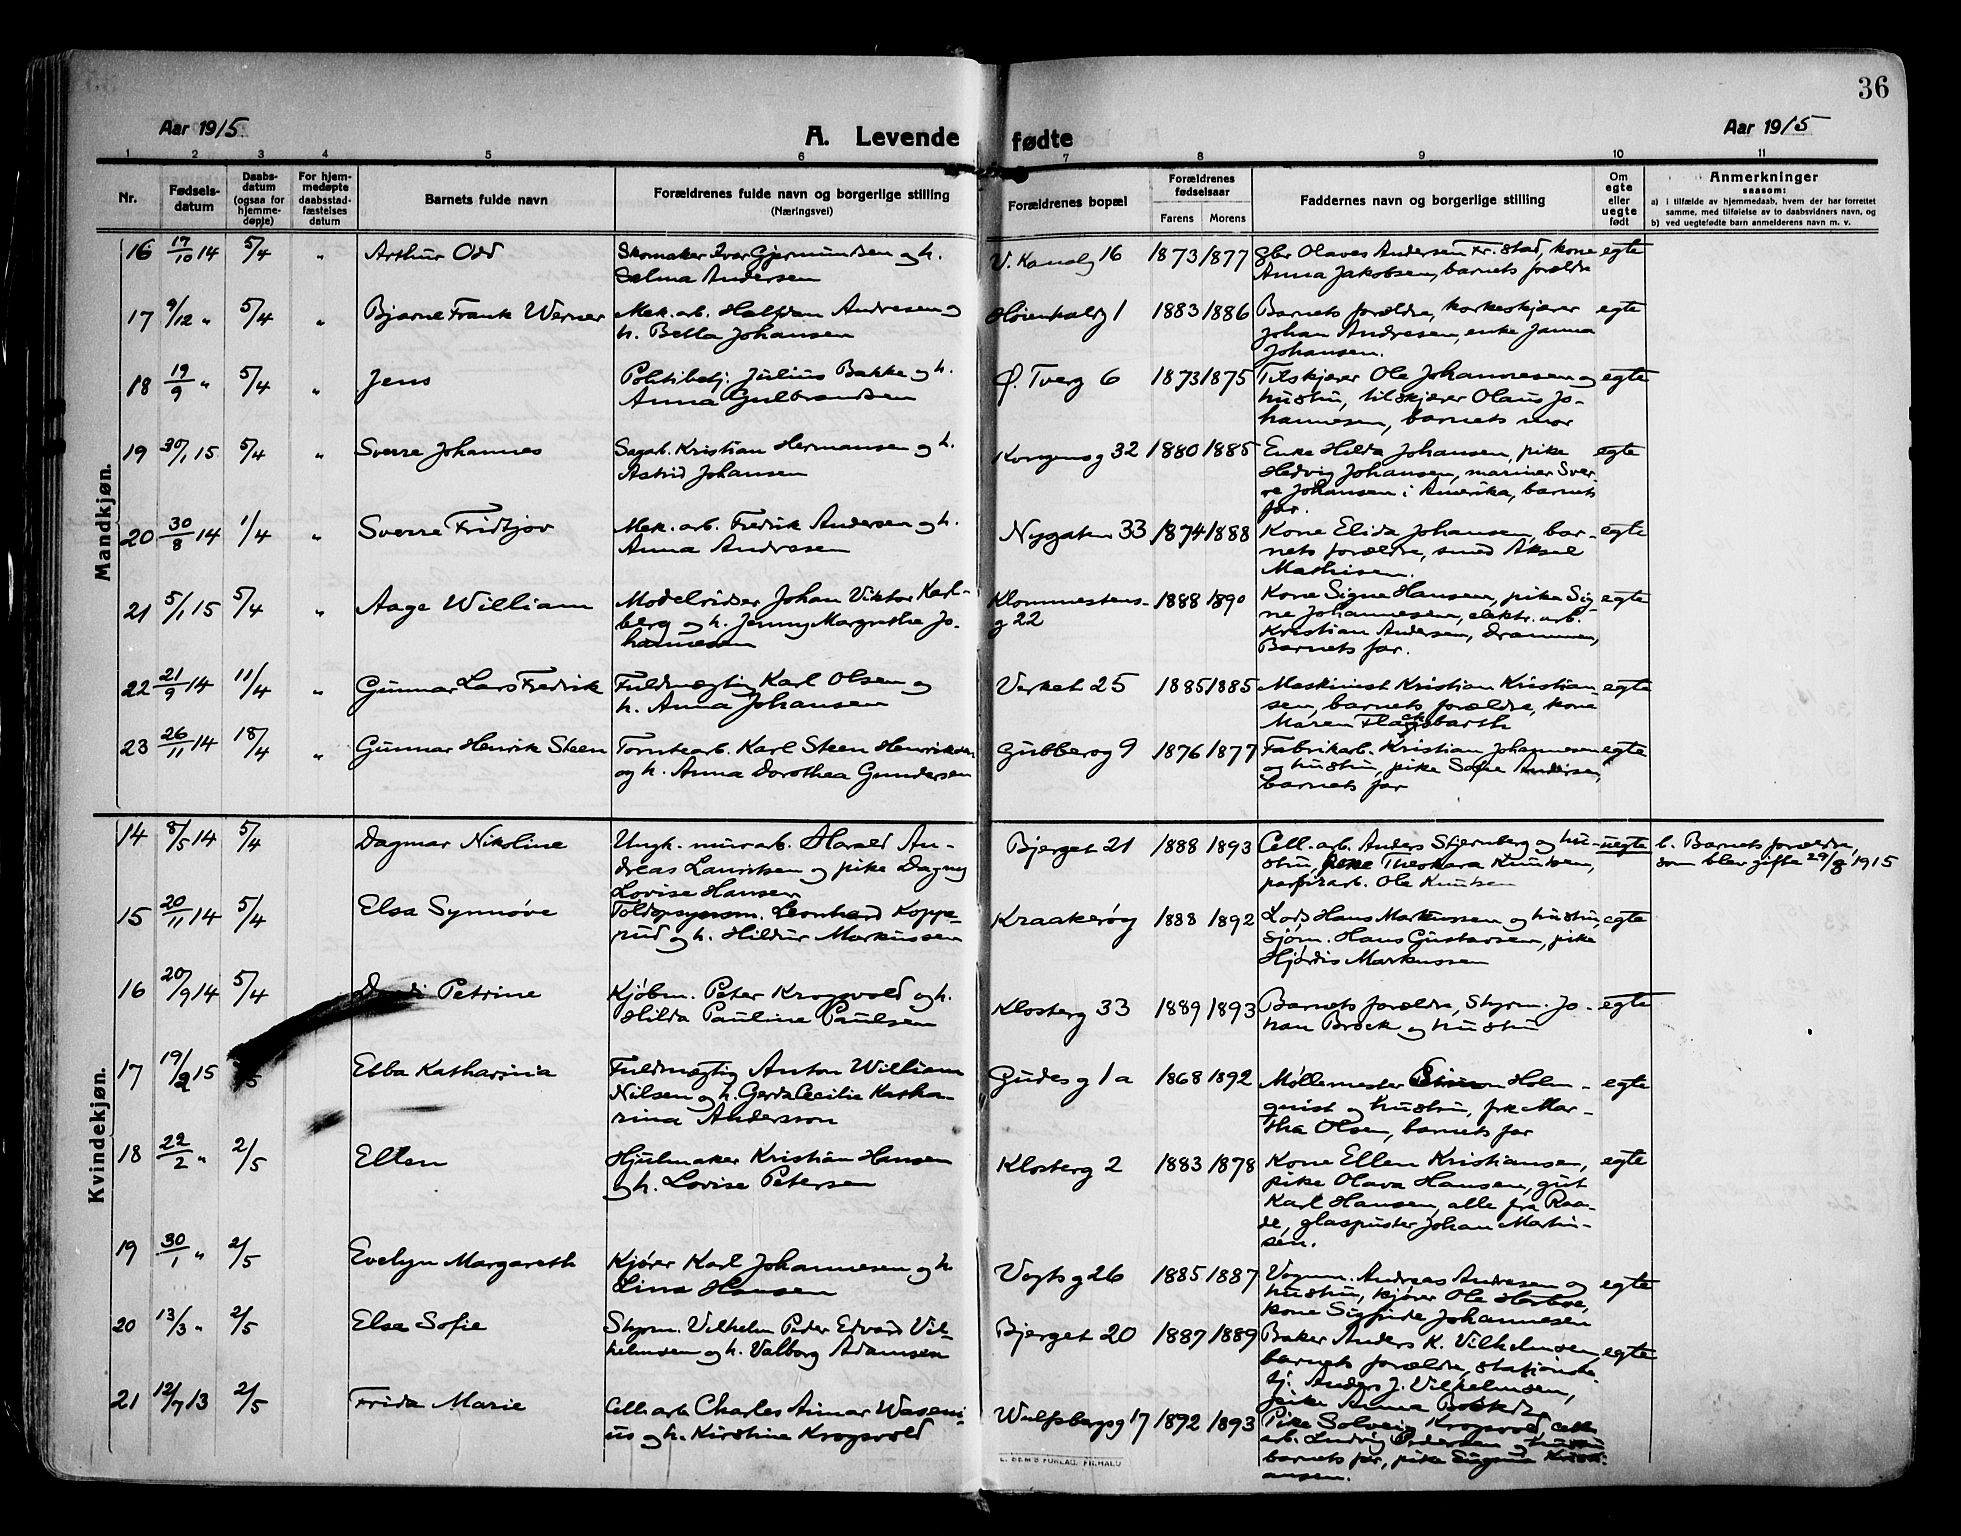 36
Aar 1915
A. Levende fødte
Aar 1915
1 2 3 4 5 6 7 8 9 10 11
Nr.
Fødsels-
datum
Daabs-
datum
(ogsaa for
hjemme-
døpte)
For hjem-
medøpte
daabsstad-
fæstelses
datum
Barnets fulde navn
Forældrenes fulde navn og borgerlige stilling
(Næringsvei)
Forældrenes bopæl
Forældrenes
fødselsaar
Farens Morens
Faddernes navn og borgerlige stilling
Om
egte
eller
uegte
født
Anmerkninger
saasom:
a) i tilfælde av hjemmedaab, hvem der har forrettet
samme, med tilføielse av to daabsvidners navn, og
b) ved uegtefødte barn anmelderens navn m. v.
Mandkjøn.
16 17/10 14 5/4 " Arthur Odd Skomaker Ivar Gjermundsen og h. V. Kanalg 16 1873 1877 Gbr Olaves Andersen Fr.stad, kone egte
Selma Andersen Anna Jakobsen, barnets forældre
17 9/12 " 5/4 " Bjarne Frank Werner Mek. arb. Halfdan Andresen og Høienhaldg 1 1883 1886 Barnets forældre, korkeskjærer egte
h. Betta Johansen Johan Andresen, enke Janna
Johansen.
18 19/9 " 5/4 " Jens Politibetj. Julius Bakke og h. Ø. Tverg 6 1873 1875 Tilskjærer Ole Johannesen og egte
Anna Gulbrandsen hustru, tilskjærer Olaus Jo-
hannesen, barnets mor
19 30/1 15 5/4 " Sverre Johannes Sagarb. Kristian Hermansen og h. Kongensg 32 1880 1885 Enke Hilda Johansen, pike egte
Astrid Johansen Hedvig Johansen, mariner Sver-
re Johansen i Amerika, barnets
far.
20 30/8 14 1/4 " Sverre Fridtjov Mek. arb. Fredrik Andersen og h. Nygaten 33 1874 1888 Kone Elida Johansen, bar- egte
Anna Andresen nets forældre, smed Aksel
Mathisen.
21 5/1 15 5/4 " Aage William Modelsnidser Johan Viktor Karl- Klommestens- 1888 1890 Kone Signe Hansen, pike Sig- egte
berg og h. Jenny Margrethe Jo- g 22 ne Johannesen, elektr. arb.
hannesen Kristian Andersen, Drammen,
Barnets far.
22 21/9 14 11/4 " Gunnar Lars Fredrik Fuldmægtig Karl Olsen og Verket 25 1885 1885 Maskinist Kristian Kristian- egte
h. Anna Johansen sen, barnets forældre, kone
Maren
23 26/11 14 18/4 " Gunnar Henrik Steen Tomtearb. Karl Steen Henriksen Gubberog 9 1876 1877 Fabrikarb. Kristian Johannesen egte
og h. Anna Dorothea Gundersen og hustru, pike Sofie Andersen,
barnets far
Kvindekjøn.
14 8/5 14 5/4 Dagmar Nikoline Ungk. murarb. Harald An- Bjerget 21 1888 1893 Cell. arb. Anders Stjernberg og hu- uegte b. Barnets forældre,
dreas Lauritsen og pike Dagny stru, pike Theodora Knutsen, som blev gifte 29/8 1915
Lovise Hansen papirarb. Ole Knutsen
15 20/11 14 5/4 Elsa Synnøve Toldopsynsm. Leonhard Koppe- Kraakerøy 1888 1892 Lods Hans Markussen og hustru, egte
rud og h. Hildur Markussen Sjøm. Hans Gustavsen, pike
Hjørdis Markussen
16 20/9 14 5/4 Petrine Kjøbm. Peter Krogsvold og h. Klosterg 33 1889 1893 Barnets forældre, Styrm. Jo- egte
Hilda Pauline Paulsen han Brock og hustru
17 19/2 15 Ebba Katharina Fuldmægtig Anton William Gudesg 1a 1868 1892 Møllemester Holm- egte
Nilsen og h. Gerda Cecilie Katha- quist og hustru, frk Mar-
rina Andersson tha Olsen, barnets far
18 22/2 " 2/5 Ellen Hjulmaker Kristian Hansen Klosterg 2 1883 1878 Kone Ellen Kristiansen, egte
og h. Lovise Petersen pike Olava Hansen, gut
Karl Hansen, alle fra Raa-
de, glaspuster Johan Martin-
sen.
19 30/1 " 2/5 Evelyn Margareth Kjører Karl Johannesen og h Vogtsg 26 1885 1887 Vognm. Andreas Andresen og egte
Lina Hansen hustru, kjører Ole
kone Sigfride Johannesen
20 13/3 " 2/5 Elsa Sofie Styrm. Vilhelm Peter Edvard Vil- Bjerget 20 1887 1889 Baker Anders K. Vilhelmsen, egte
helmsen og h. Valborg Adamsen barnets forældre, stations-
bj. Anders J. Vilhelmsen,
pike Anna
21 12/7 13 2/5 Frida Marie Cell. arb Charles Aimar Waseni- Wulfsbergsg 17 1892 1893 Pike Solveig Krogsvold, cell.
us og h. Kirstine Krogsvold arb. Ludvig Pedersen og hustru
barnets far, pike Sigma Kristi-
ansen.